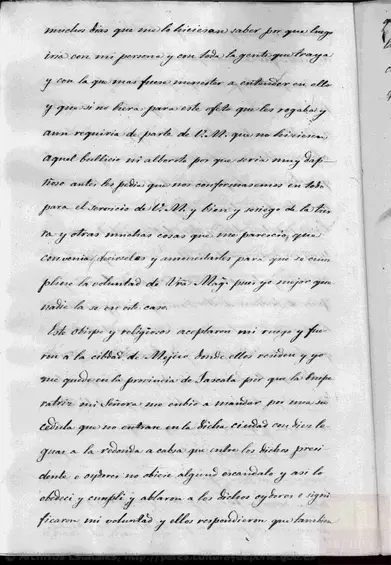 muchos dias que me lo hiciesen saber por que luego
iria con mi persona y con toda la gente que traya
y con la que mas fuese menester a entender en ello
y que si no hera para este efeto que les rogaba y
aun requiria de parte de V. M. que no hiciesen
aquel bullicio ni alboroto por que seria muy da-
ñoso antes les pedia que nos conformasemos en todo
para el servicio de V. M. y bien y sosiego de la tier-
ra y otras muchas cosas que me parecio que
convenia decirselas y amonestarles para que se cum-
pliese la voluntad de Vra Magd. pues yo mejor que
nadie la se en este caso.
Este obispo y religiosos aceptaron mi ruego y fue-
ron a la cibdad de Mejico donde ellos residen y yo
me quede en la provincia de Tascala por que la Empe-
ratriz mi Señora me enbio a mandar por una su
cedula que no entrara en la dicha ciudad con diez le-
guas a la redonda a cabsa que entre los dichos presi-
dente e oydores no obiese algund escandalo y asi lo
obedeci y cumpli y ablaron a los dichos oydores e signi-
ficaron mi voluntad y ellos respondieron que tambien